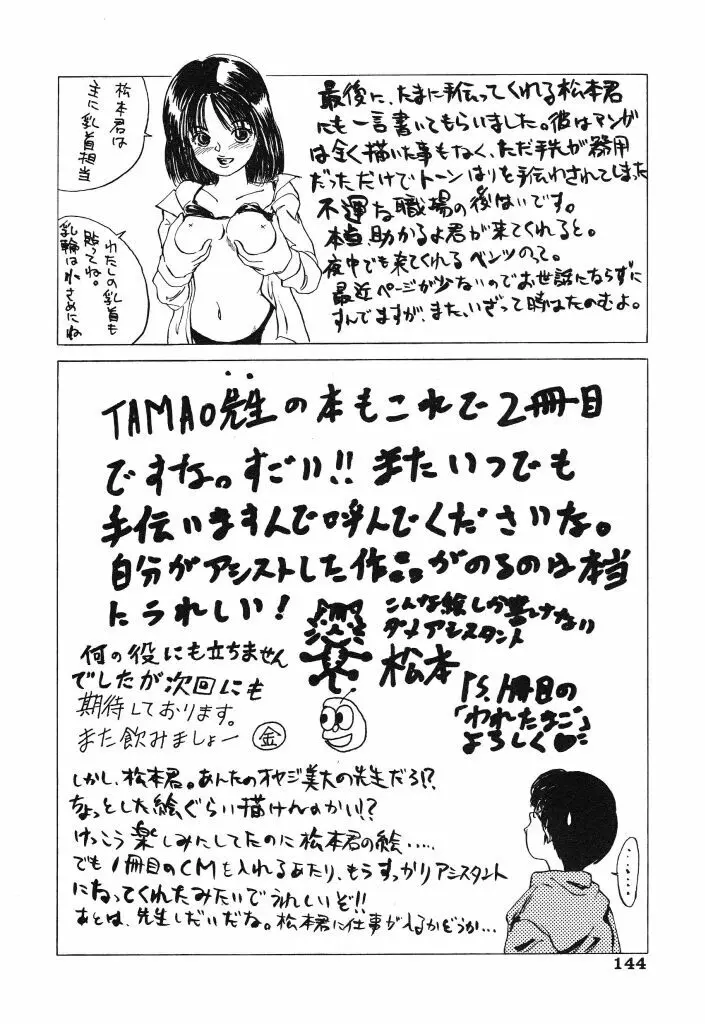 最後に、たまに手伝ってくれる松本君
にも一言書いてもらいました。彼はマンガ
は全く描いた事もなく、ただ手先が器用
だっただけでトーンはりを手伝わされてしまった
不運な職場の後はいです。
本当助かるよ君が来てくれると。
夜中でも来てくれるベンツのって。
最近ページが少ないのでお世話にならずに
すんでますが、また、いざって時はたのむよ。
松本君は
主に乳首担当
わたしの乳首も
貼ってね。
乳輪は小さめにね
TAMAO先生の本もこれで2冊目
ですな。すごい!!またいつでも
手伝いますんで呼んでくださいな。
自分がアシストした作品がのるのは本当
にうれしい!
こんな絵しか書けない
ダメアシスタント
松本
P.S.1冊目の
「われたまご」
よろしく♥
何の役にも立ちません
でしたが次回にも
期待しております。
また飲みましょー
㊎
しかし、松本君。あんたのオヤジ美大の先生だろ!?
ちょっとした絵ぐらい描けんのかい!?
けっこう楽しみにしてたのに松本君の絵.....
でも1冊目のCMを入れるあたり、もうすっかりアシスタント
になってくれたみたいでうれしいぞ!!
あとは、先生しだいだな。松本君に仕事が入るかどうか...
......
144